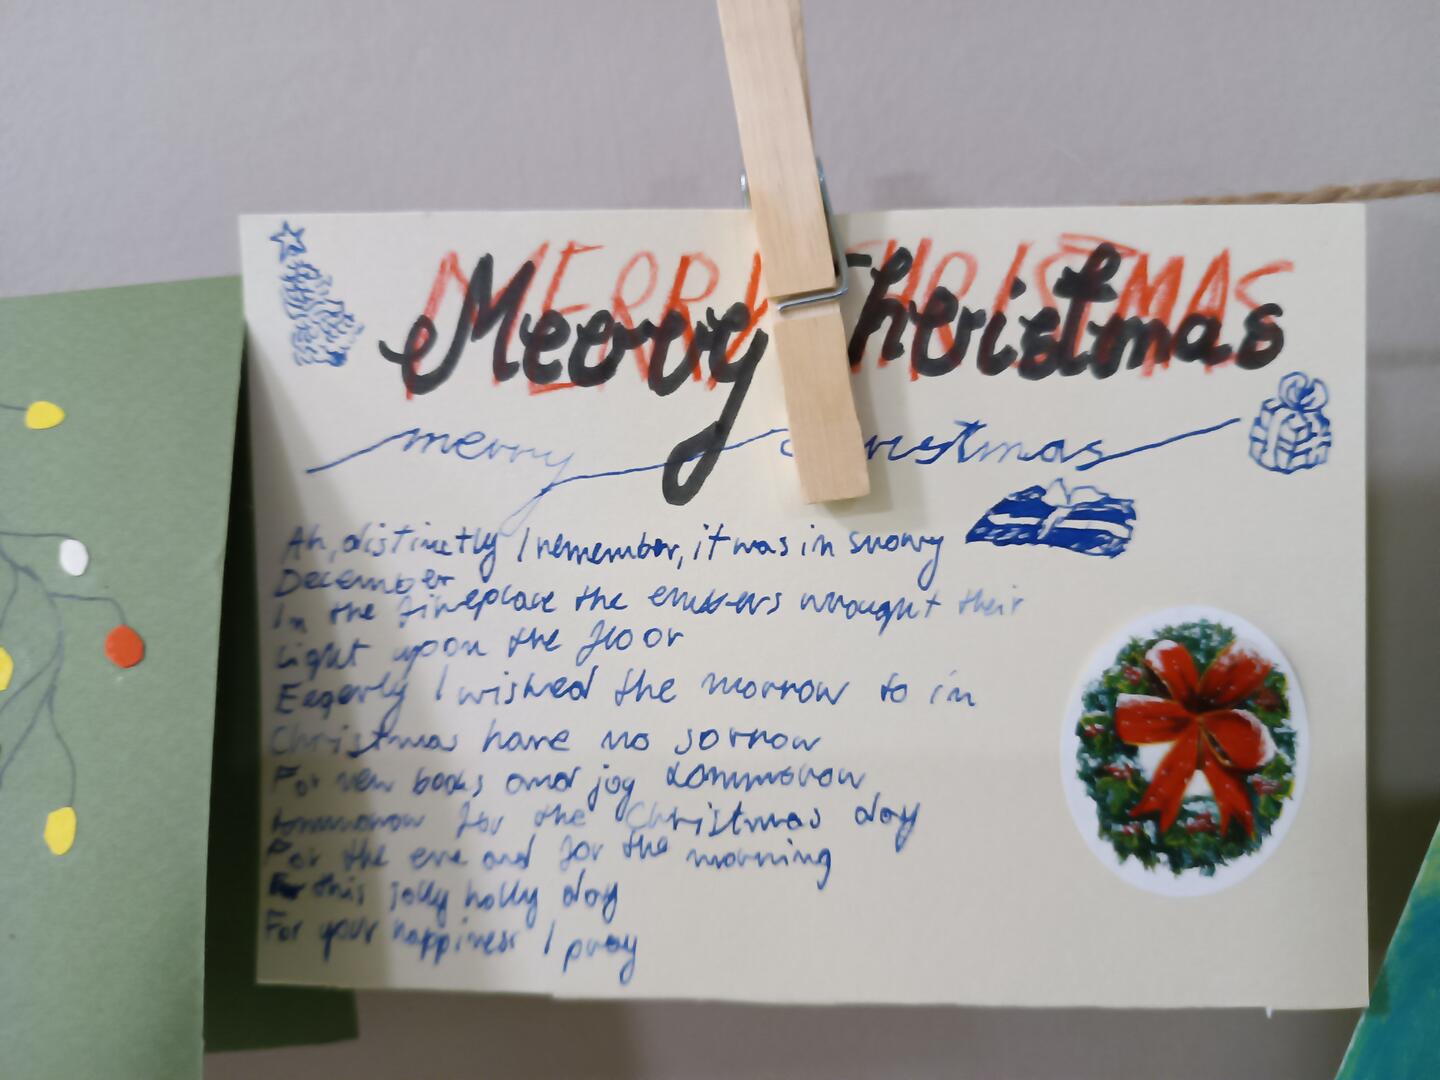 MERRY CHRISTMAS
Merry Christmas
merry christmas
Ah, distinctly I remember, it was in snowy
December
In the fireplace the embers wrought their
Light upon the floor
Eagerly I wished the morrow to in
Christmas have no sorrow
For new books and joy tommorow
tommorow for the Christmas day
For the eve and for the morning
this jolly holly day
For your happiness I pray